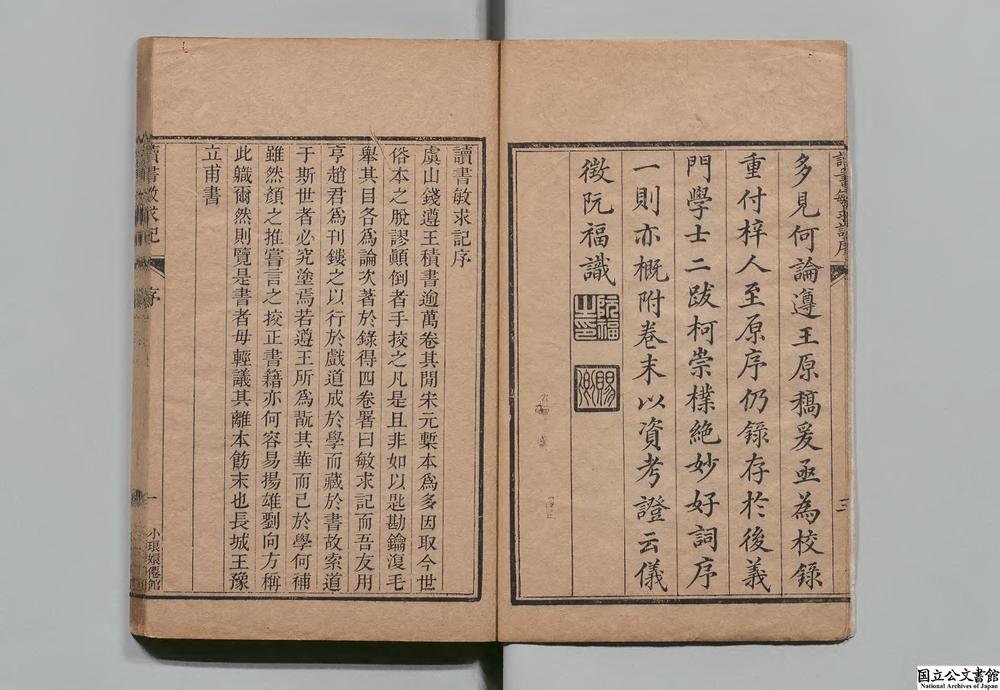 讀書敏求記序
多見何論遵王原稿爰亟為校錄
重付梓人至原序仍錄存於後義
門學士二跋柯崇樸絶妙好詞序
一則亦概附卷末以資考證云儀
徵阮福識
阮福之印
賜卿
讀書敏求記序
虞山錢遵王積書逾萬卷其閒宋元槧本爲多因取今世
俗本之脫謬顛倒者手挍之凡是且非如以匙勘鑰湨毛
舉其目各爲論次著於錄得四卷署曰敏求記而吾友用
亨趙君爲刊鏤之以行於戲道成於學而藏於書故索道
于斯世者必究塗焉若遵王所爲翫其華而已於學何補
雖然顏之推嘗言之挍正書籍亦何容易揚雄劉向方稱
此軄爾然則覽是書者毋輕議其離本飭末也長城王豫
立甫書
讀書敏求記
序
一
小琅嬛僊館
国立公文書館
National Archives of Japan